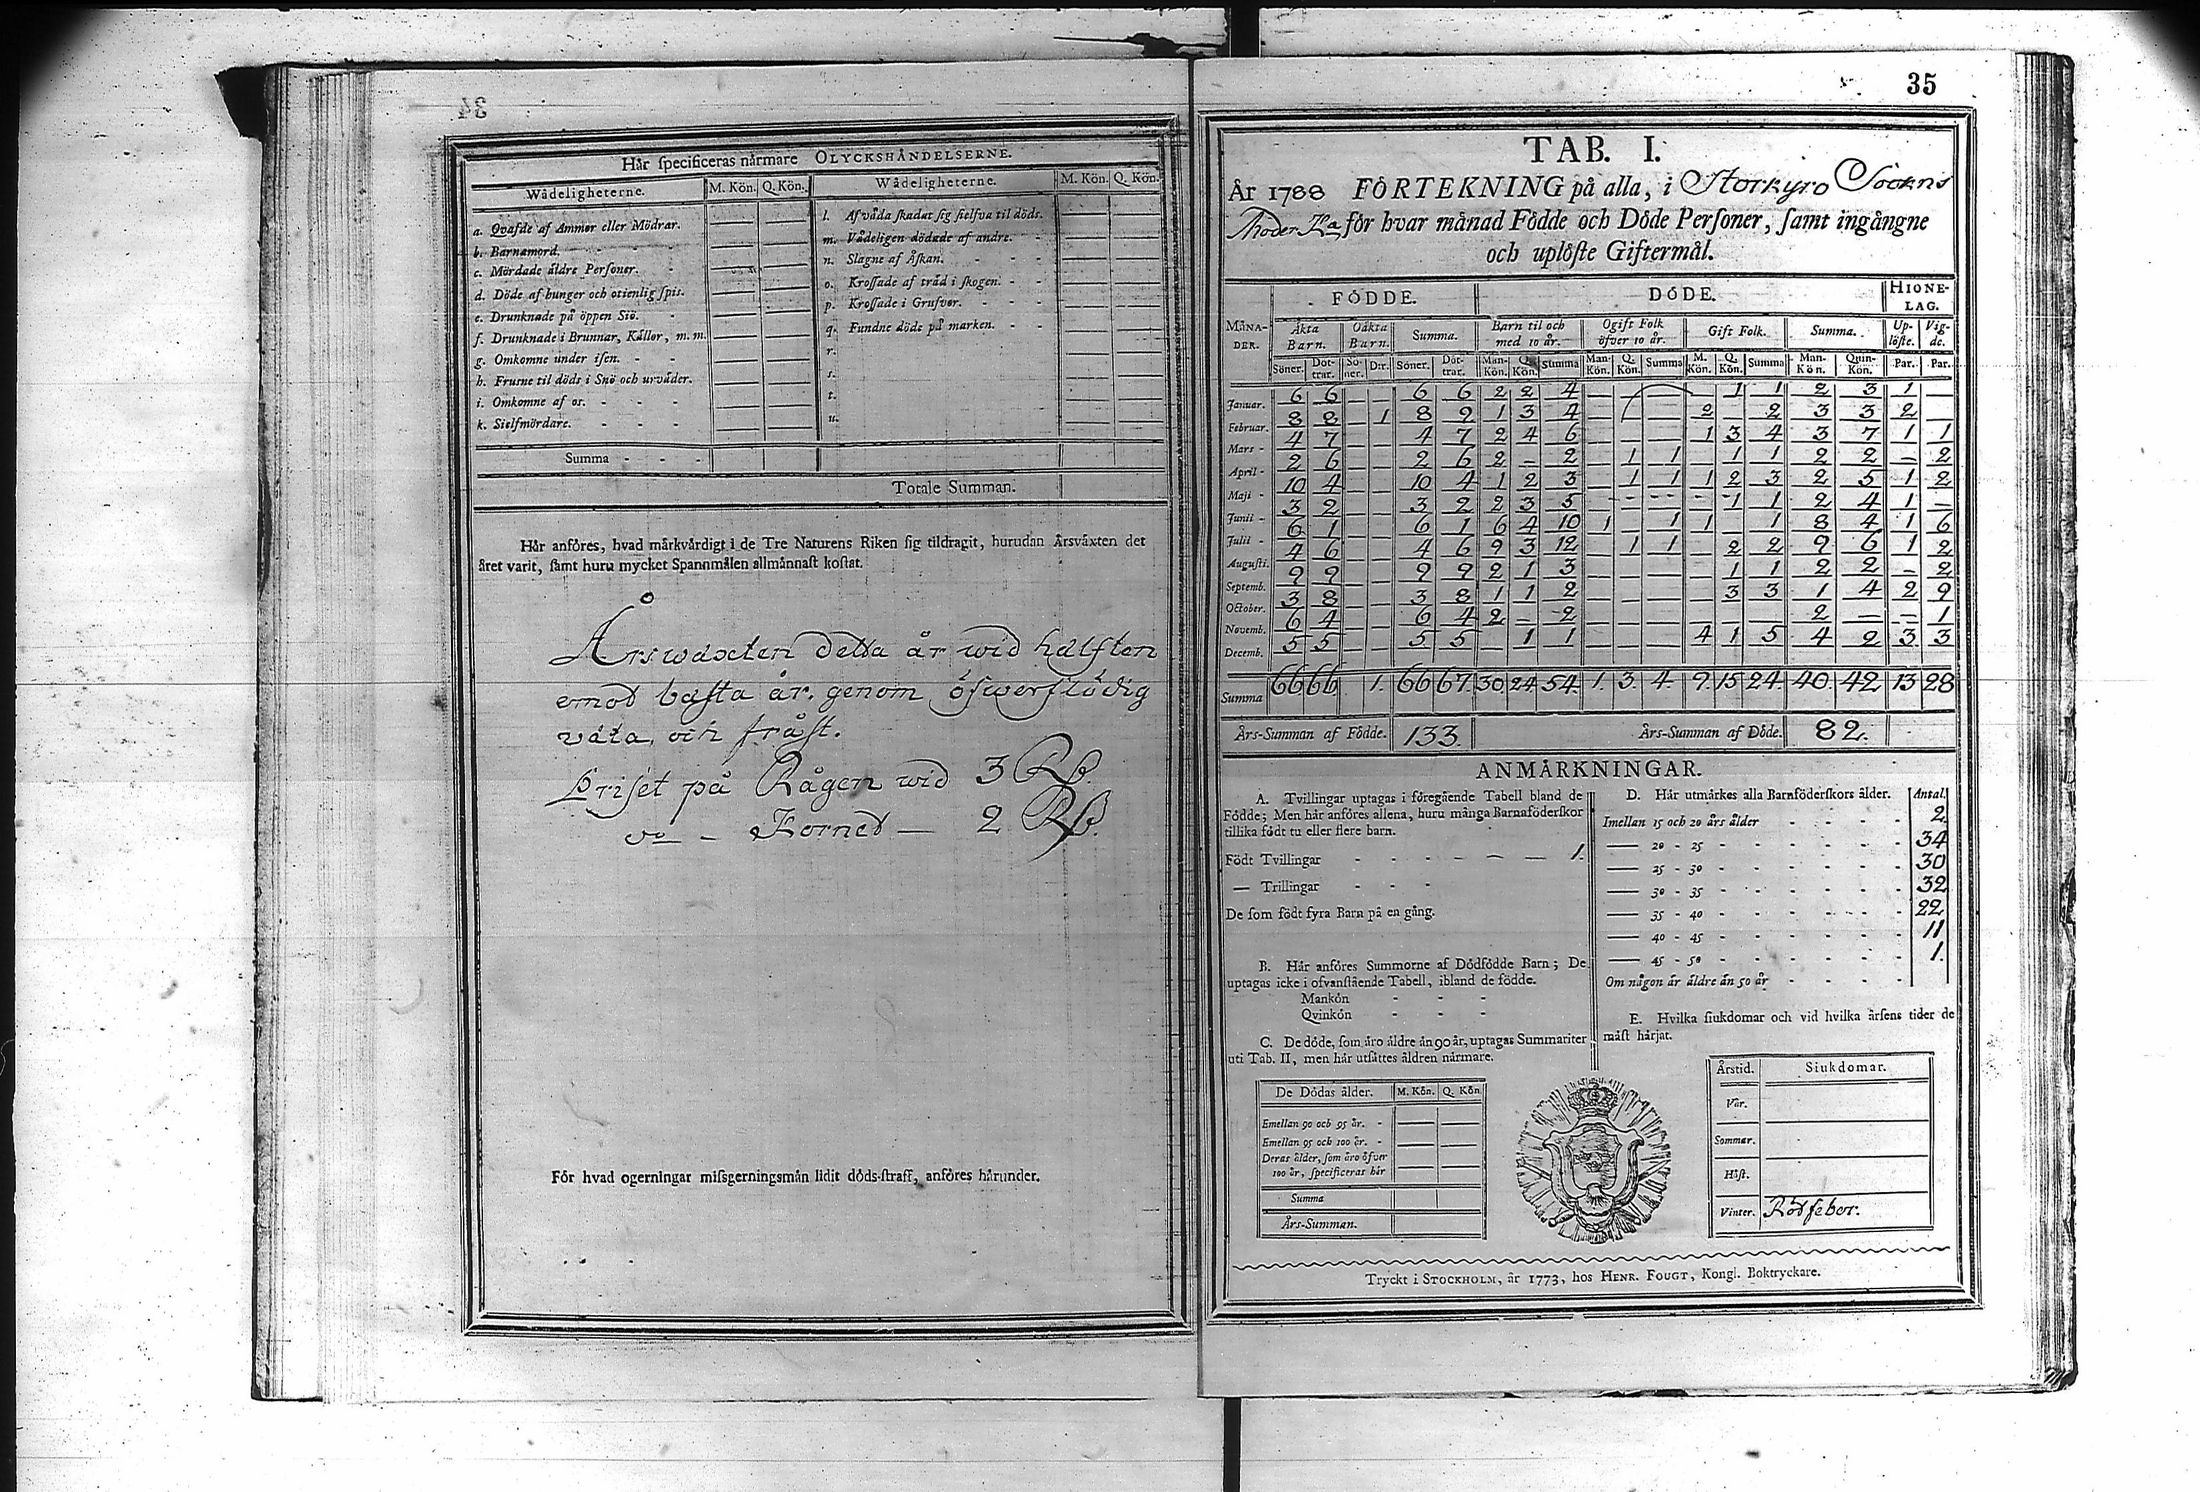 34
Hår ſpecificeras nårmare OLYCKSHÅNDELSERNE.
Wådeligheterne. M. Kön. Q. Kön. Wådeligheterne. M. Kön. Q. Kön.
a. Qvafde af Ammor eller Mödrar.
b. Barnamord.
c. Mördade åldre Perſoner.
d. Döde af hunger och otienlig ſpis.
e. Drunknade på öppen Siö.
f. Drunknade i Brunnar, Kållor, m. m.
g. Omkomne under iſen.
h. Fruſne til döds i Snö och urvåder.
i. Omkomne af os.
k. Sielfmördare.
l. Af våda ſkadat ſig ſielfva til döds.
m. Vådeligen dödade af andre.
n. Slagne af Åſkan.
o. Kroſſade af tråd i ſkogen.
p. Kroſſade i Grufvor.
q. Fundne döde på marken.
r.
s.
t.
u.
Summa
Totale Summan.
Hår anföres, hvad mårkvårdigt i de Tre Naturens Riken ſig tildragit, hurudan Årsvåxten det
året varit, ſamt huru mycket Spannmålen allmånnaſt koſtat.
Årswäxten detta år wid hälften
emot bäſta år, genom öfwerflödig
väta, och fråſt.
Priſet på Rågen wid 3 R
do - Kornet - 2 R
För hvad ogerningar miſsgerningsmån lidit döds-ſtraff, anföres hårunder.
35
TAB. I.
År 1788 FÖRTEKNING på alla, i Storkyro Sockns
Moder Ka för hvar månad Födde och Döde Perſoner, ſamt ingångne
och uplöſte Giftermål.
MÅNADER. FÖDDE. DÖDE. HIONELAG.
Åkta Barn. Oåkta Barn. Summa. Barn til och med 10 år. Ogift Folk öfver 10 år. Gift Folk. Summa. Uplöſte. Vigde.
Söner. Döttrar. Söner. Dtr. Söner. Döttrar. Man-Kön. Q. Kön. Summa Man-Kön. Q. Kön. Summa M. Kön. Q. Kön. Summa Man-Kön. Quin-Kön. Par. Par.
Januar. 6 6 — — 6 6 2 2 4 — — — — 1 1 2 3 1 —
Februar. 8 8 — 1 8 9 1 3 4 — — — 2 — 2 3 3 2 —
Mars - 4 7 — — 4 7 2 4 6 — — — 1 3 4 3 7 1 1
April - 2 6 — — 2 6 2 — 2 — 1 1 — 1 1 2 2 — 2
Maji - 10 4 — — 10 4 1 2 3 — 1 1 1 2 3 2 5 1 2
Junii - 3 2 — — 3 2 2 3 5 — — — — 1 1 2 4 1 —
Julii - 6 1 — — 6 1 6 4 10 1 — 1 1 — 1 8 4 1 6
Auguſti. 4 6 — — 4 6 9 3 12 — 1 1 — 2 2 9 6 1 2
Septemb. 9 9 — — 9 9 2 1 3 — — — — 1 1 2 2 — 2
October. 3 8 — — 3 8 1 1 2 — — — — 3 3 1 4 2 9
Novemb. 6 4 — — 6 4 2 — 2 — — — — — — 2 — — 1
Decemb. 5 5 — — 5 5 — 1 1 — — — 4 1 5 4 2 3 3
Summa 66 66 1. 66 67 30 24 54. 1. 3. 4. 9. 15 24. 40. 42 13 28
Års-Summan af Födde. 133. Års-Summan af Döde. 82.
ANMÅRKNINGAR.
A. Tvillingar uptagas i föregående Tabell bland de
Födde; Men hår anföres allena, huru många Barnaföderſkor
tillika födt tu eller flere barn.
Födt Tvillingar - - - 1.
— Trillingar - - -
De ſom födt fyra Barn på en gång.
B. Hår anföres Summorne af Dödfödde Barn; De
uptagas icke i ofvanſtående Tabell, ibland de födde.
Mankön - - -
Qvinkön - - -
C. De döde, ſom åro åldre ån 90 år, uptagas Summariter
uti Tab. II, men hår utſåttes åldren nårmare.
De Dödas ålder. M. Kön. Q. Kön.
Emellan 90 och 95 år. -
Emellan 95 och 100 år. -
Deras ålder, ſom åro öfver
100 år, ſpecificeras hår
Summa
Års-Summan.
D. Hår utmårkes alla Barnföderſkors ålder. Antal.
Imellan 15 och 20 års ålder 2
— 20 - 25 34
— 25 - 30 30
— 30 - 35 32
— 35 - 40 22
— 40 - 45 11
— 45 - 50 1.
Om någon år åldre ån 50 år
E. Hvilka ſiukdomar och vid hvilka årſens tider de
måſt hårjat.
Årstid. Siukdomar.
Vår.
Sommar.
Höſt.
Vinter. Rödfeber.
Tryckt i STOCKHOLM, år 1773, hos HENR. FOUGT, Kongl. Boktryckare.